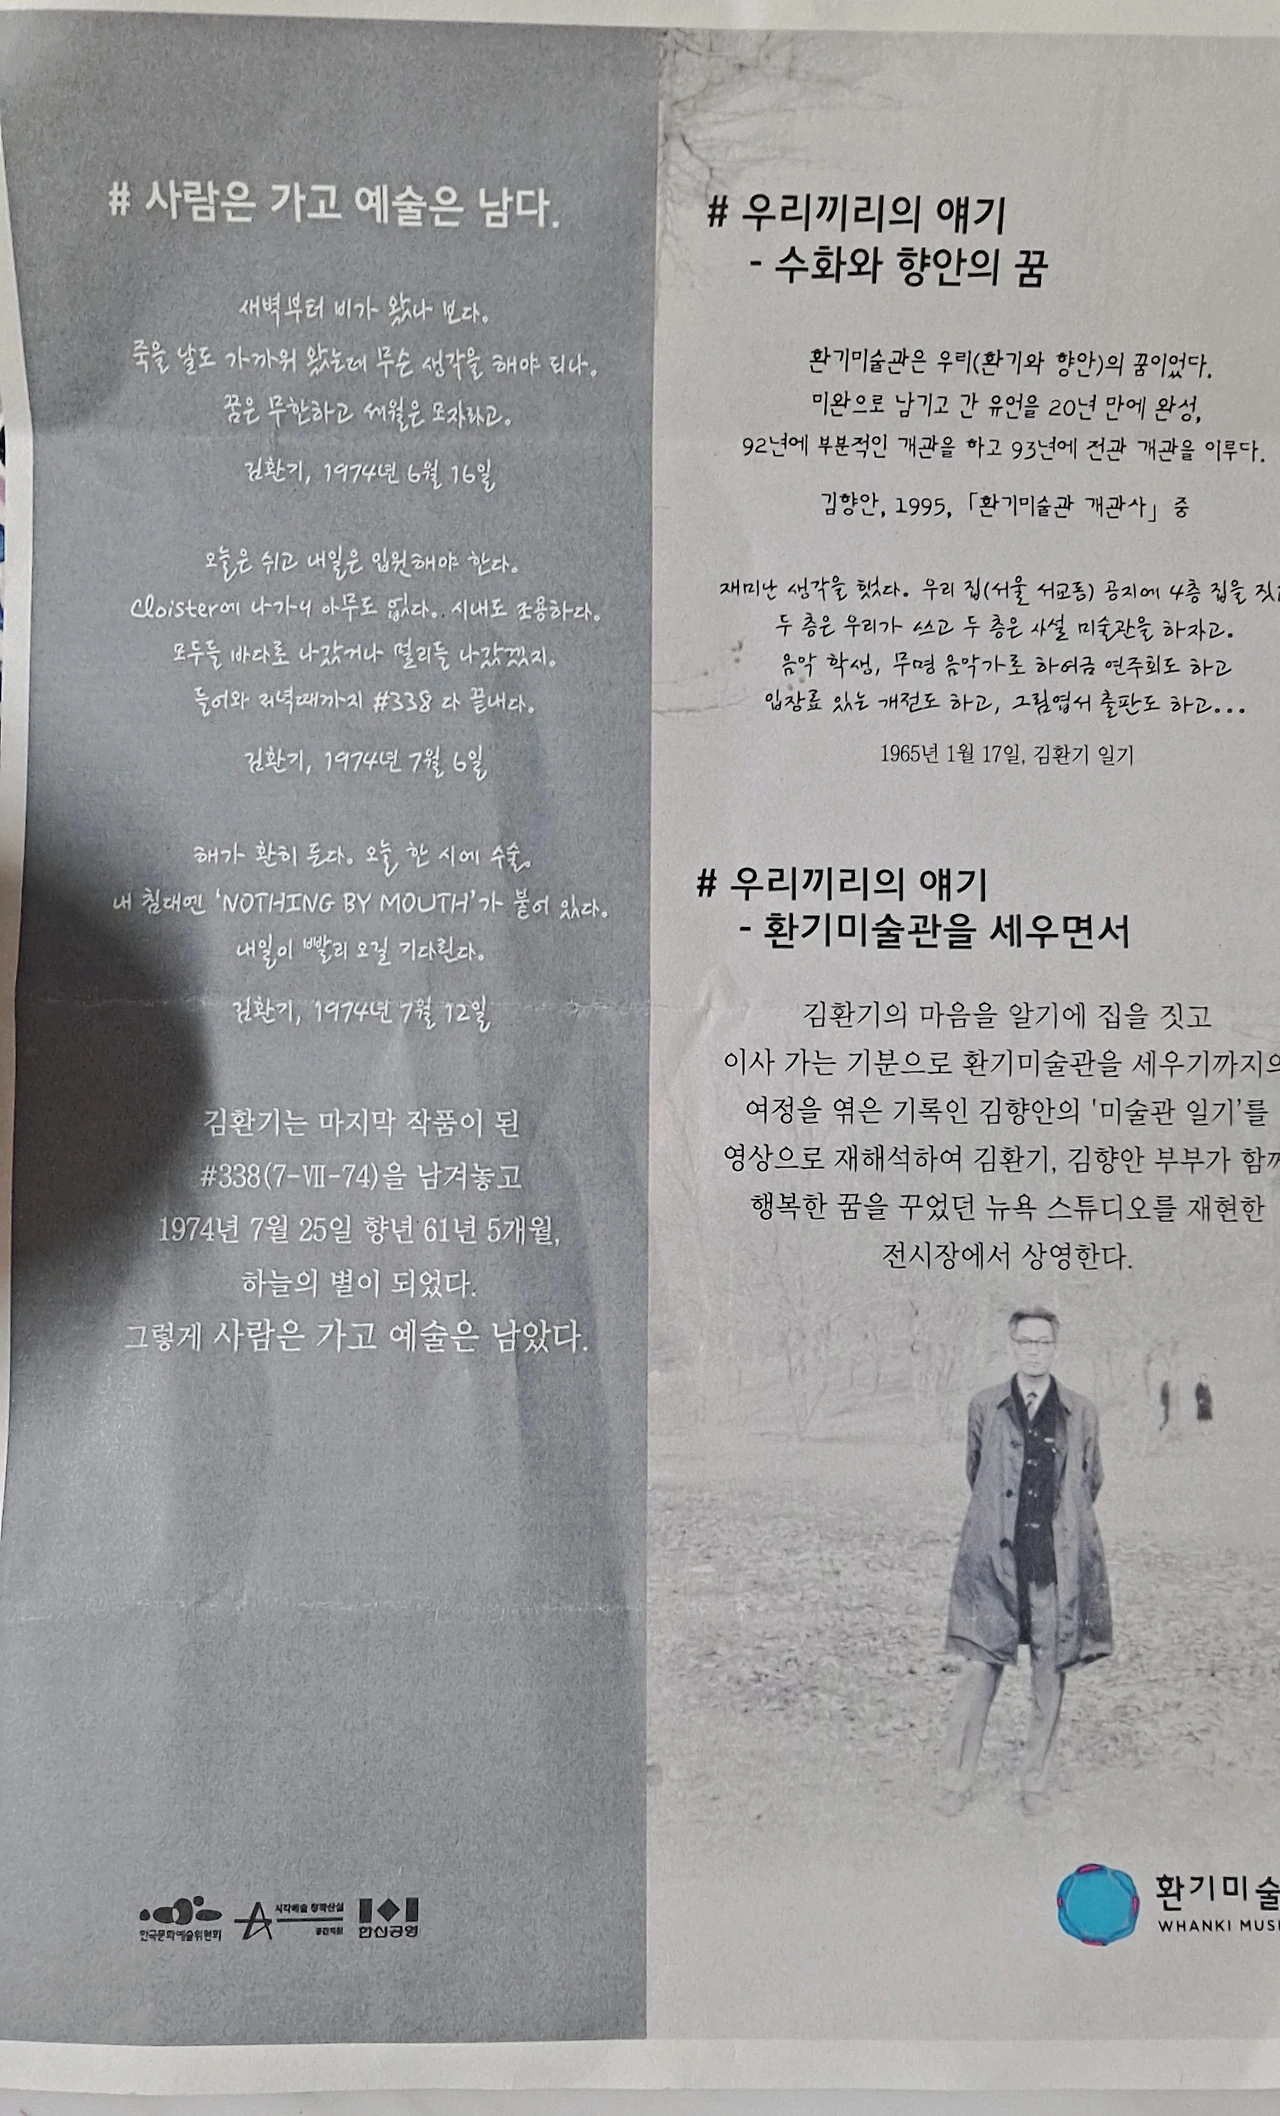 # 사람은 가고 예술은 남다.
새벽부터 비가 왔나 보다.
죽을 날도 가까워 왔는데 무슨 생각을 해야 되나.
꿈은 무한하고 세월은 모자라고.
김환기, 1974년 6월 16일
오늘은 쉬고 내일은 입원해야 한다.
Cloister에 나가니 아무도 없다. 시내도 조용하다.
모두들 바다로 나갔거나 멀리들 나갔겠지.
들어와 저녁때까지 #338 다 끝내다.
김환기, 1974년 7월 6일
해가 환히 든다. 오늘 한 시에 수술.
내 침대엔 'NOTHING BY MOUTH'가 붙어 있다.
내일이 빨리 오길 기다린다.
김환기, 1974년 7월 12일
김환기는 마지막 작품이 된
#338(7-Ⅶ-74)을 남겨놓고
1974년 7월 25일 향년 61년 5개월,
하늘의 별이 되었다.
그렇게 사람은 가고 예술은 남았다.
한국문화예술위원회
시각예술 창작산실
공간지원
한신공영
# 우리끼리의 얘기
- 수화와 향안의 꿈
환기미술관은 우리(환기와 향안)의 꿈이었다.
미완으로 남기고 간 유언을 20년 만에 완성,
92년에 부분적인 개관을 하고 93년에 전관 개관을 이루다.
김향안, 1995, 「환기미술관 개관사」 중
재미난 생각을 했었다. 우리 집(서울 서교동) 공지에 4층 집을
두 층은 우리가 쓰고 두 층은 사설 미술관을 하자고.
음악 학생, 무명 음악가로 하여금 연주회도 하고
입장료 있는 개전도 하고, 그림엽서 출판도 하고...
1965년 1월 17일, 김환기 일기
# 우리끼리의 얘기
- 환기미술관을 세우면서
김환기의 마음을 알기에 집을 짓고
이사 가는 기분으로 환기미술관을 세우기까지의
여정을 엮은 기록인 김향안의 '미술관 일기'를
영상으로 재해석하여 김환기, 김향안 부부가
행복한 꿈을 꾸었던 뉴욕 스튜디오를 재현한
전시장에서 상영한다.
환기미술
WHANKI MUS